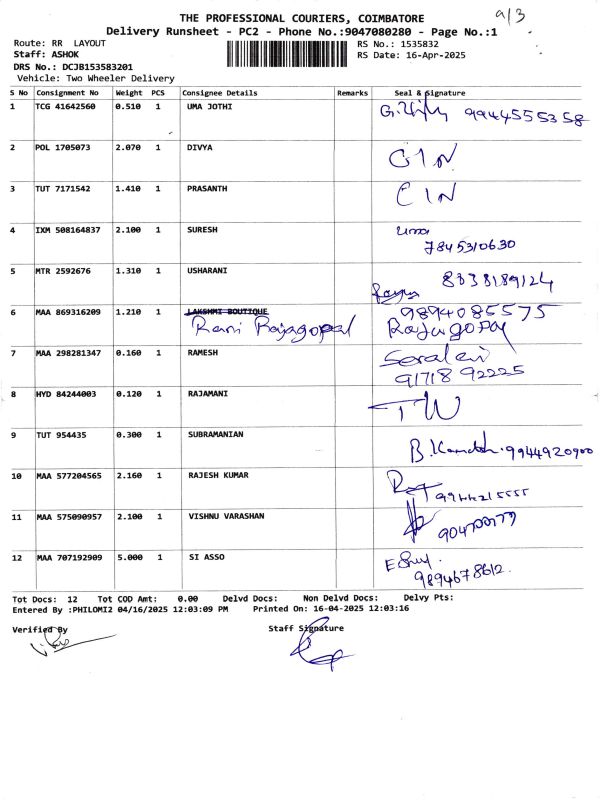 THE PROFESSIONAL COURIERS, COIMBATORE
9/3
Delivery Runsheet - PC2 - Phone No.:9047080280 - Page No.:1
Route: RR LAYOUT
RS No.: 1535832
Staff: ASHOK
RS Date: 16-Apr-2025
DRS No.: DCJB153583201
Vehicle: Two Wheeler Delivery
S No Consignment No Weight PCS Consignee Details Remarks Seal & Signature
1 TCG 41642560 0.510 1 UMA JOTHI 9944555358
2 POL 1705073 2.070 1 DIVYA
3 TUT 7171542 1.410 1 PRASANTH
4 IXM 508164837 2.100 1 SURESH
7845310630
5 MTR 2592676 1.310 1 USHARANI 8838189124
6 MAA 869316209 1.210 1 LAKSHMI BOUTIQUE 9894085575
Rani Rajagopal Rajagopal
7 MAA 298281347 0.160 1 RAMESH
91718 92225
8 HYD 84244003 0.120 1 RAJAMANI TW
9 TUT 954435 0.300 1 SUBRAMANIAN
9944920900
10 MAA 577204565 2.160 1 RAJESH KUMAR
9944215555
11 MAA 575090957 2.100 1 VISHNU VARASHAN
12 MAA 707192909 5.000 1 SI ASSO
9894678612
Tot Docs: 12 Tot COD Amt: 0.00 Delvd Docs: Non Delvd Docs: Delvy Pts:
Entered By :PHILOMI2 04/16/2025 12:03:09 PM Printed On: 16-04-2025 12:03:16
Verified By Staff Signature